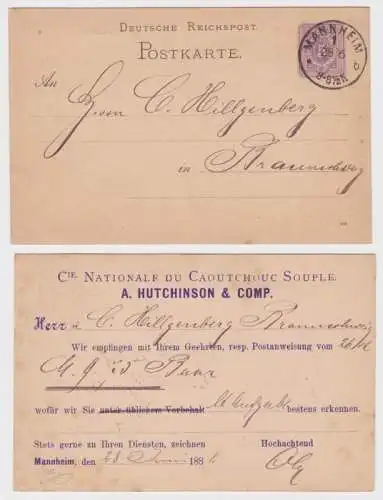 DEUTSCHE REICHSPOST.
POSTKARTE.
MANNHEIM
1
An
Herrn C. Hillgenberg
in Braunschweig
CIE. NATIONALE DU CAOUTCHOUC SOUPLE.
A. HUTCHINSON & COMP.
Herr C. Hillgenberg Braunschweig
Wir empfingen mit Ihrem Geehrten, resp. Postanweisung vom 26/6
M. 9. 25 Baar
wofür wir Sie unter üblichem Vorbehalt bestens erkennen.
Stets gerne zu Ihren Diensten, zeichnen Hochachtend
Mannheim, den 28 Juni 188